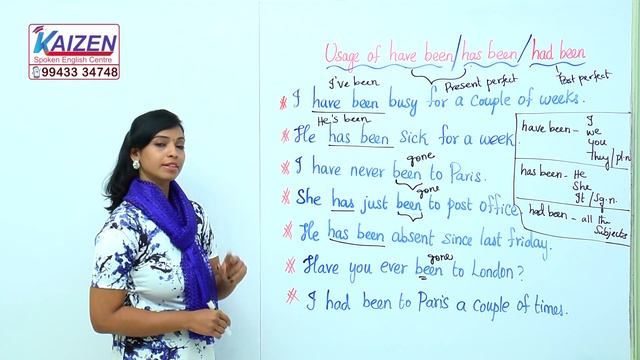 KAIZEN
Spoken English Centre
99433 34748
Usage of have been/has been/had been
I've been
Present perfect
Past perfect
* I have been busy for a couple of weeks.
He's been
* He has been sick for a week.
gone
* I have never been to Paris.
gone
* She has just been to post office
* He has been absent since last friday.
gone
* Have you ever been to London?
* I had been to Paris a couple of times.
have been - I
we
you
They/pl.n
has been - He
She
It/Sg.n.
had been - all the
Subjects